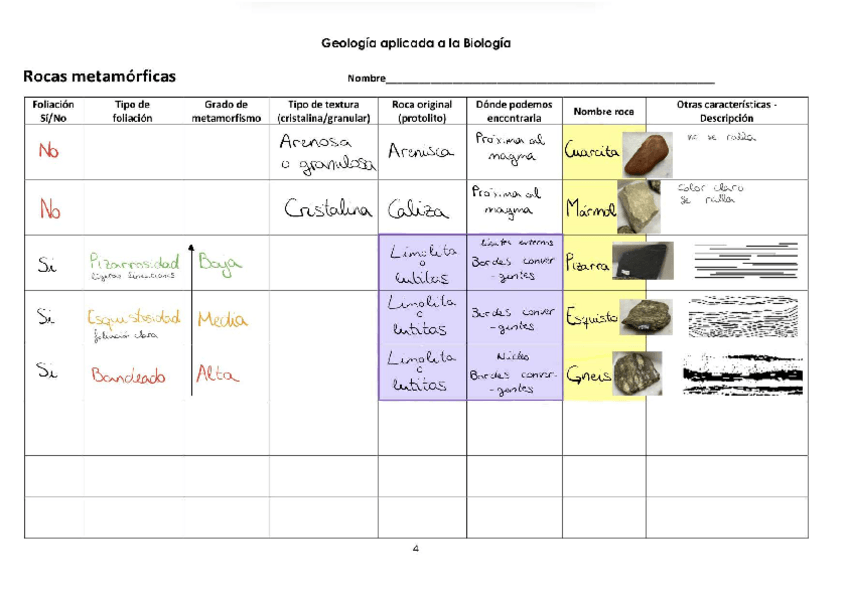 Geología aplicada a la Biología
Rocas metamórficas
Nombre
Foliación Sí/No
Tipo de foliación
Grado de metamorfismo
Tipo de textura (cristalina/granular)
Roca original (protolito)
Dónde podemos encontrarla
Nombre roca
Otras características - Descripción
No
Arenosa
o granulosa
Arenisca
Próxima al
magma
Cuarcita
no se ralla
No
Cristalina
Caliza
Próxima al
magma
Mármol
Color claro
se ralla
Si
Pizarrosidad
ligeras lineaciones
Baja
Limolita
o
lutitas
Bordes conver
-gentes
Pizarra
Si
Esquistosidad
foliación clara
Media
Limolita
o
lutitas
Bordes conver
-gentes
Esquisto
Si
Bandeado
Alta
Limolita
o
lutitas
Núcleo
Bordes conver-
-gentes
Gneis
4